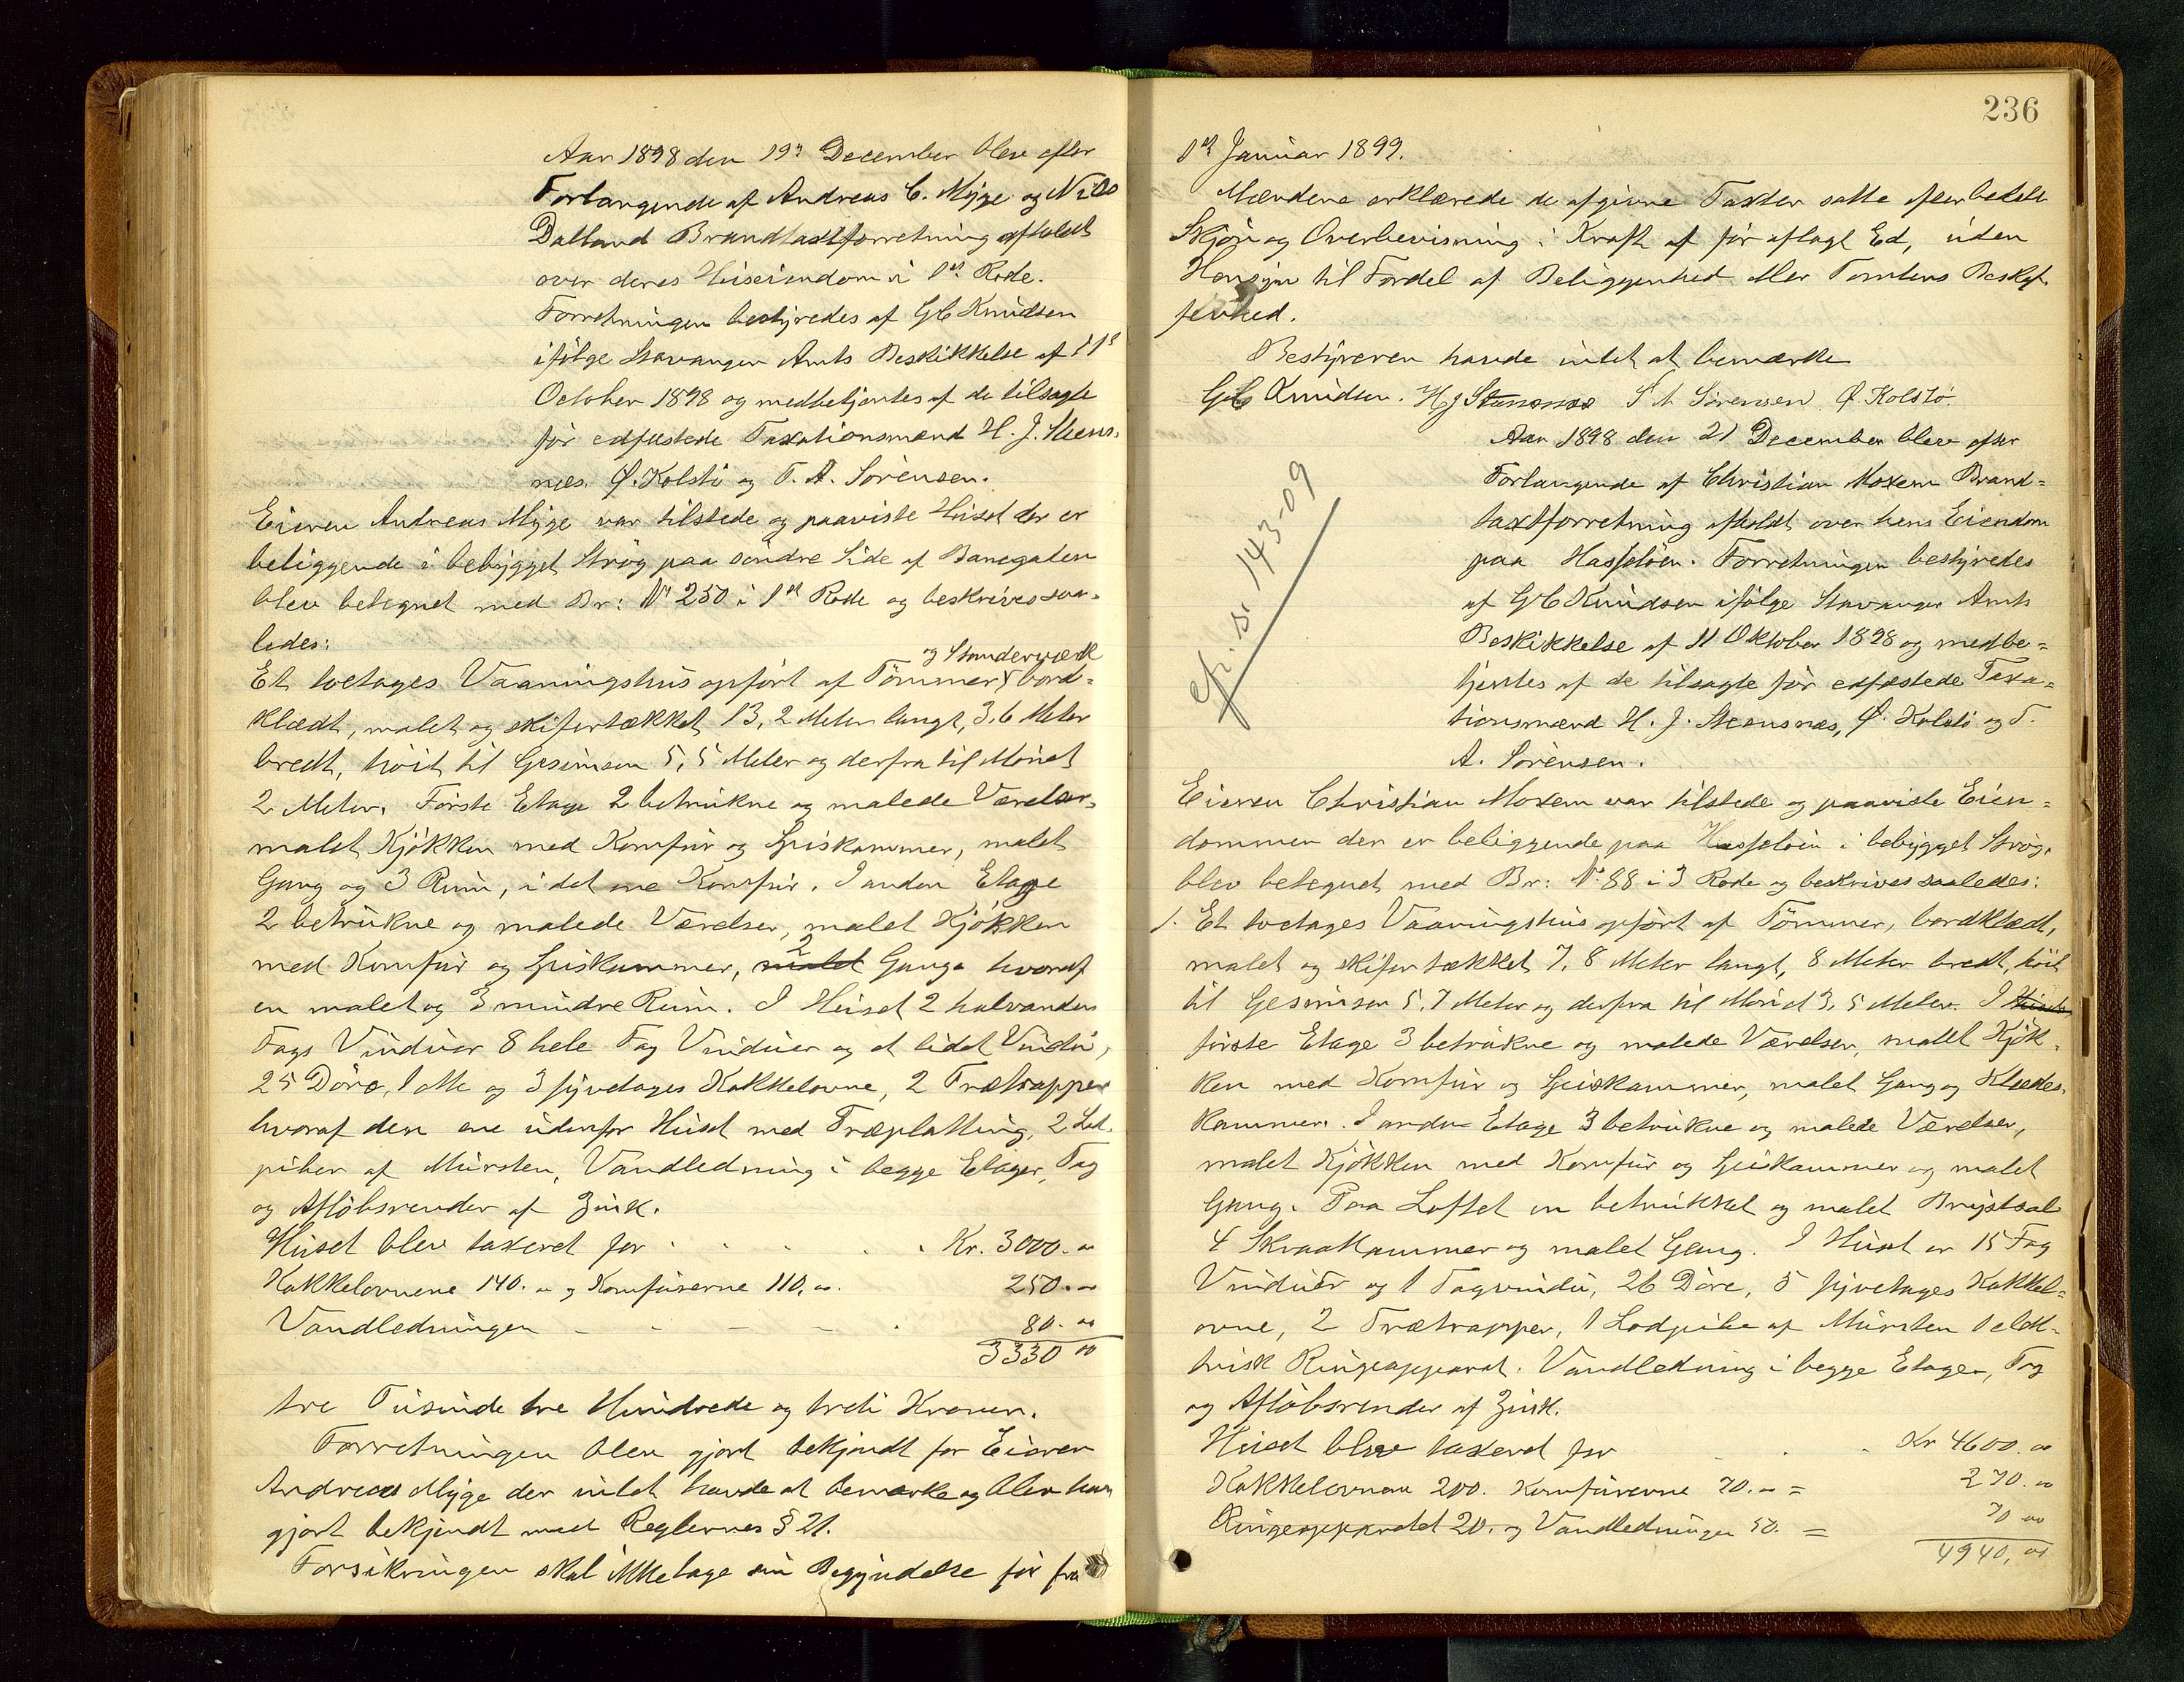 Aar 1898 den 19de December blev efter
Forlangende af Andreas C. Myge og Nils
Dalland Brandtaxtforretning afholdt
over deres Huseiendom i 1ste Rode.
Forretningen bestyredes af GC Knudsen
ifølge Stavanger Amts Beskikkelse af 11te
October 1898 og medbetjentes af de tilsagte
før edfæstede Taxationsmænd H. J. Steens-
næs. Ø. Kolstø og T. A. Sørensen.
Eieren Andreas Myge var tilstede og paaviste Huset der er
beliggende i bebygget Strøg paa søndre Side af Banegaden
blev betegnet med Br: No 250 i 1ste Rode og beskrives saa-
ledes:
og Standerværk
Et toetages Vaaningshus opført af Tømmer bord-
klædt, malet og skifertækket 13,2 Meter langt, 3,6 Meter
bredt, høit til Gesimsen 5,5 Meter og derfra til Mønet
2 Meter. Første Etage 2 betrukne og malede Værelser,
malet Kjøkken med Komfur og Spiskammer, malet
Gang og 3 Rum, i det ene Komfur. I anden Etage
2 betrukne og malede Værelser, malet Kjøkken
med Komfur og Spiskammer, malet 2 Gange hvoraf
en malet og 3 mindre Rum. I Huset 2 halvanden
Fags Vinduer 8 hele Fag Vinduer og et lidet Vindu,
25 Døre, 1 Alm og 3 fyretages Kakkelovne, 2 Trætrapper
hvoraf den ene udenfor Huset med Træplatting, 2 Lod-
piber af Mursten, Vandledning i begge Etager, Tag
og Afløbsrender af Zink.
Huset blev taxeret for . . . . . Kr. 3000.00
Kakkelovnene 140.00 og Komfurerne 110.00. 250.00
Vandledningen - - - - - 80.00
3330 00
tre Tusinde tre Hundrede og treti Kroner.
Forretningen blev gjort bekjendt for Eieren
Andreas Myge der intet havde at bemærke og blev han
gjort bekjendt med Reglernes § 21.
Forsikringen skal ikke tage sin Begyndelse før fra
236
1ste Januar 1899.
Mændene erklærede de afgivne Taxter satte efter bedste
Skjøn og Overbevisning i Kraft af før aflagt Ed, uden
Hensyn til Fordel af Beliggenhed eller Tomtens Beskaf-
fenhed.
Bestyreren havde intet at bemærke
GC Knudsen. H J Steensnæs T A Sørensen Ø. Kolstø.
Aar 1898 den 21 December blev efter
Forlangende af Christian Moxem Brand=
taxtforretning afholdt over hans Eiendom
paa Hasseløen. Forretningen bestyredes
af GC Knudsen ifølge Stavanger Amts
Beskikkelse af 11 Oktober 1898 og medbe=
tjentes af de tilsagte før edfæstede Taxa=
tionsmænd H. J. Steensnæs, Ø. Kolstø og T.
A. Sørensen.
cfr. s. 143-09
Eieren Christian Moxem var tilstede og paaviste Eien=
dommen der er beliggende paa Hasseløen i bebygget Strøg,
blev betegnet med Br: No 88 i 3 Rode og beskrives saaledes:
1. Et toetages Vaaningshus opført af Tømmer, bordklædt,
malet og skifertækket 7,8 Meter langt, 8 Meter bredt, høit
til Gesimsen 5,7 Meter og derfra til Mønet 3,5 Meter. I Huset
første Etage 3 betrukne og malede Værelser, malet Kjøk-
ken med Komfur og Spiskammer, malet Gang og Klædes-
kammer. I anden Etage 3 betrukne og malede Værelser,
malet Kjøkken med Komfur og Spiskammer og malet
Gang. Paa Loftet en betrukket og malet Brystsal
4 Skraakammer og malet Gang. I Huset er 15 Fag
Vinduer og 1 Tagvindu, 26 Døre, 5 fyretages Kakkel=
ovne, 2 Trætrapper, 1 Lodpibe af Mursten 1 elek-
trisk Ringeapparat. Vandledning i begge Etager, Tag
og Afløbsrender af Zink.
Huset blev taxeret for . . Kr 4600.00
Kakkelovnene 200. Komfurerne 70.00 = 270.00
Ringeapparatet 20. og Vandledningen 50. = 70 00
4940,00